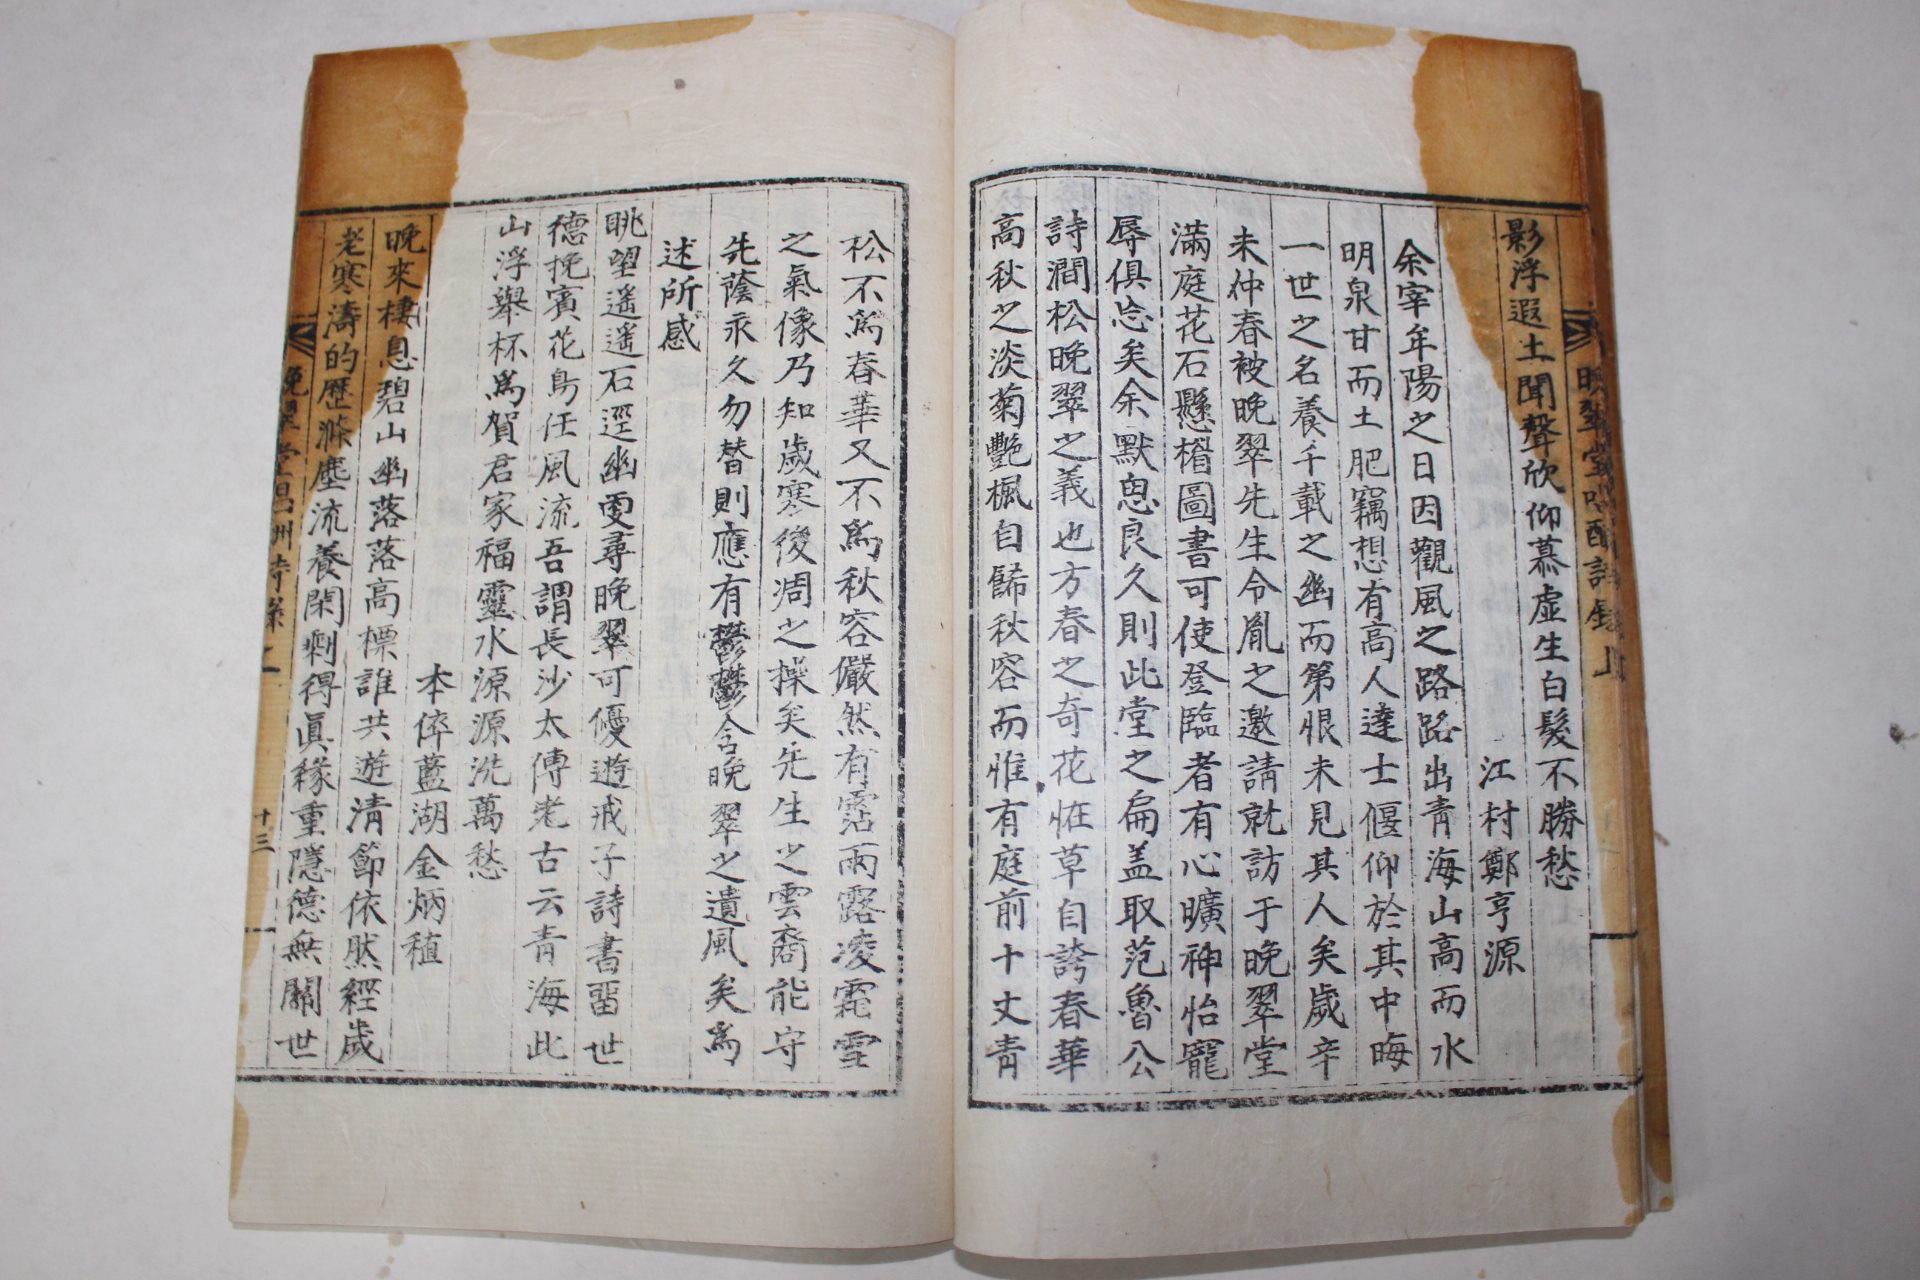 影浮遐土聞聲欣仰慕虛生白髮不勝愁
江村鄭亨源
余宰年陽之日因觀風之路路出靑海山高而水
明泉甘而土肥竊想有高人達士偃仰於其中晦
一世之名養千載之幽而第恨未見其人矣歲辛
未仲春被晩翠先生令胤之邀請就訪于晩翠堂
滿庭花石懸楣圖書可使登臨者有心曠神怡寵
辱俱忘矣余默思良久則此堂之扁盖取范魯公
詩澗松晩翠之義也方春之奇花恠草自誇春華
高秋之淡菊艶楓自餙秋容而惟有庭前十丈靑
松不爲春華又不爲秋容儼然有霑雨露凌霜雪
之氣像乃知歲寒後凋之操矣先生之雲裔能守
先蔭永久勿替則應有鬱鬱含晩翠之遺風矣爲
述所感
眺望遥遥石逕幽更尋晩翠可優遊戒子詩書留世
德挽賓花鳥任風流吾謂長沙太傅老古云靑海此
山浮擧杯爲賀君家福靈水源源洗萬愁
本倅藍湖金炳稙
晩來棲息碧山幽落落高標誰共遊淸節依然經歲
老寒濤的歷滌塵流養閑剩得眞緣重隱德無關世
十三